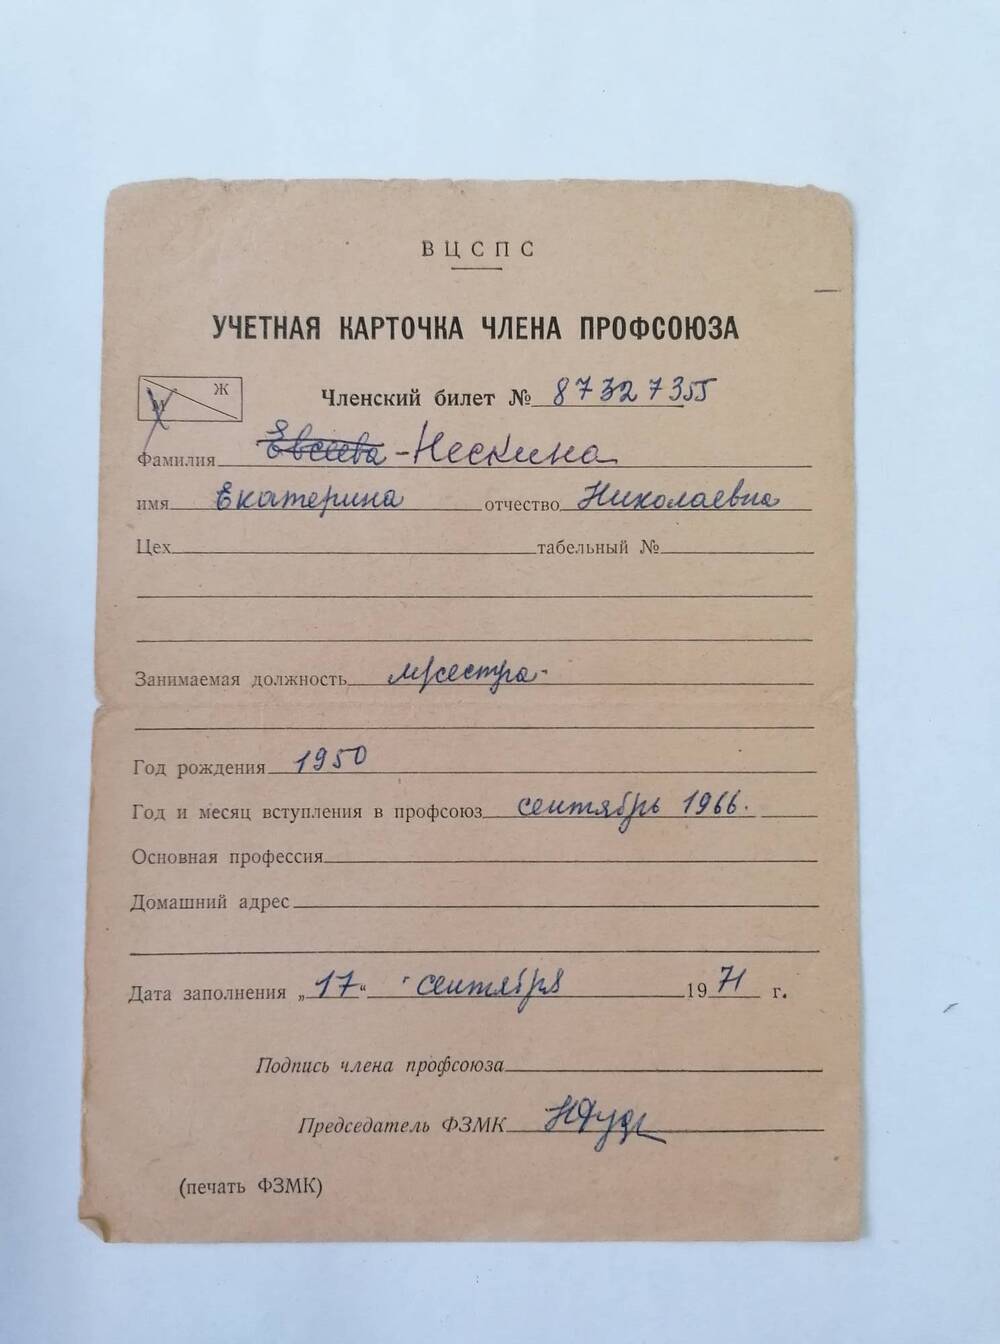 ВЦСПС
УЧЕТНАЯ КАРТОЧКА ЧЛЕНА ПРОФСОЮЗА
М Ж
Членский билет № 87327355
Фамилия Евсеева - Нескина
имя Екатерина отчество Николаевна
Цех табельный №
Занимаемая должность м/сестра -
Год рождения 1950
Год и месяц вступления в профсоюз сентябрь 1966.
Основная профессия
Домашний адрес
Дата заполнения „17“ сентября 1971 г.
Подпись члена профсоюза
Председатель ФЗМК
(печать ФЗМК)